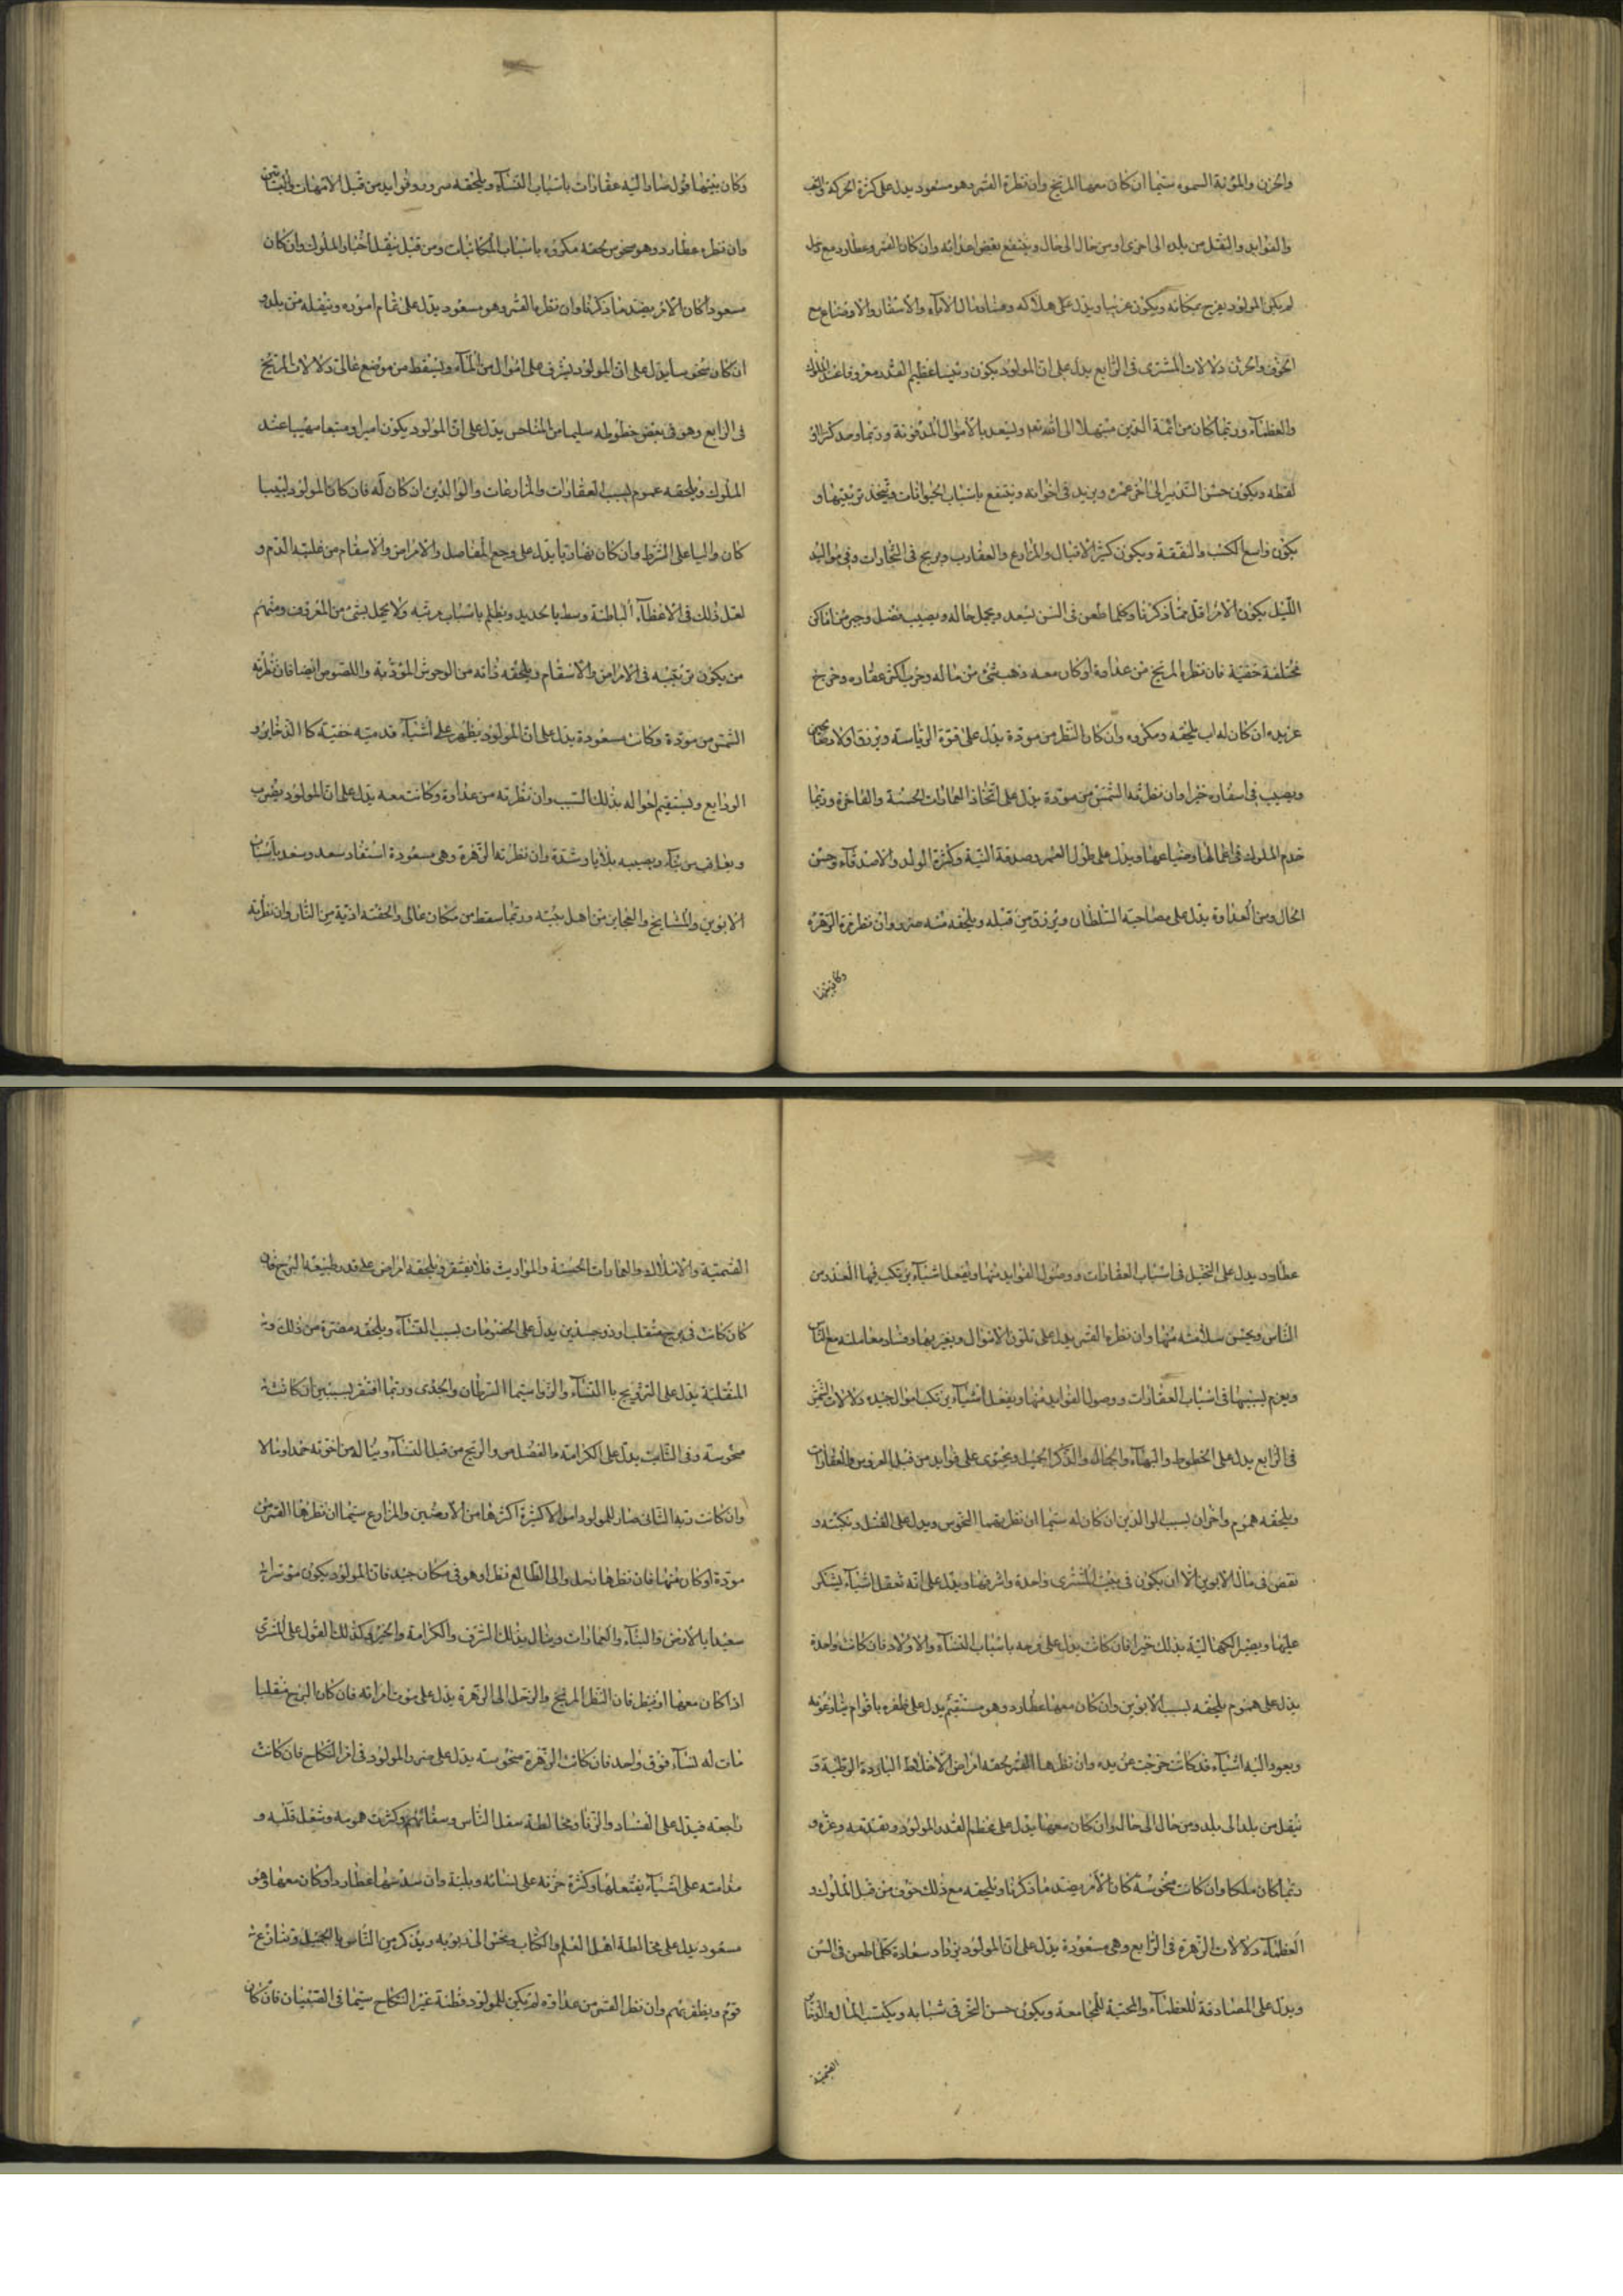 والحزن والمؤنة السموء سيما ان كان معها المريخ وان نظره القمر وهو مسعود يدل على كثرة الحركة
والفوايد والنقل من بلد الى اخرى او من حال الى حال وينتفع بعض اعدائه وان كان القمر وعطارد مع زحل
لم يكن المولود يفرح بمكانه ويكون غريبا ويدل على هلاكه وفساد مال الآباء والاسفار والاوضاع مع
الخوف والحزن دلالات المشترى فى الرابع يدل على ان المولود يكون رئيسا عظيم القدر معروفا عند الملوك
والعظمآء وربما كان من ائمة الدين مبتهلا الى الله تعم ويسعد بالاموال المدفونة وربما وجد كنزا او
لقطه ويكون حسن التدبير الى آخر عمره ويزيد فى اخوانه وينتفع باسباب الحيوانات ويتخذ تربيتها و
يكون واسع الكسب والنفقة ويكون كثير الاقبال والمزارع والعقارب ويربح فى التجارات وفى مواليد
الليل يكون الامر اقل مما ذكرنا وكلما طعن فى السن يسعد ويجمل حاله ويصيب فضل وخير من اماكن
مختلفة خفية فان نظره المريخ من عداوة او كان معه ذهب شئ من ماله وخرب اكثر عقاره وخرج
عن يده ان كان له اب يلحقه ومكروه وان كان النظر من مودة يدل على قوة الرياسة ويرزق اولاد
ويصيب فى اسفاره خيرا وان نظرته الشمس من مودة يدل على اتخاذ العمارات الحسنة والفاخرة وربما
خدم الملوك فى اعمالها وضياعها ويدل على طول العمر وصدقة النية وكثرة الولد والاصدقاء وحسن
الحال ومن العداوة يدل على مصاحبة السلطان ويرزق من قبله ويلحقه منه ضرر وان نظرته الزهرة
وكان بينهما
وكان بينهما قبول صار اليه عقارات باسباب النسآء ويلحقه سرور وفوايد من قبل الامهات
وان نظره عطارد وهو منحوس يلحقه مكروه باسباب المكاتبات ومن قبل ينقل اخبار الملوك وان كان
مسعودا كان الامر بضد ما ذكرنا وان نظره القمر وهو مسعود يدل على تمام اموره وينقله من بلد و
ان كان منحوسا يدل على ان المولود يشرف على اموال من المآء ويسقط من موضع عالى دلالات المريخ
فى الرابع وهو فى بعض حظوظه سليما من المناحس يدل على ان المولود يكون اميرا ومتبعا مهيبا عند
الملوك ويلحقه عموم بسبب العقارات والمزارعات والوالدين ان كان له فان كان المولود لبيبا
كان واليا على الشرط وان كان نهاريا يدل على وجع المفاصل والامراض والاسقام من غلبة الدم و
لعل ذلك فى الاعظآء الباطنة وسط يا حديد ويظلم باسباب مرتبه ولا يحمل بشئ من المعروف ومنهم
من يكون تربيته فى الامراض والاسقام ويلحقه ثانه من الوحوش المؤذية واللصوص ايضا فان نظرته
الشمس من مودة وكانت مسعودة يدل على ان المولود يظهر على اشيآء قديمة خفية كالذخاير و
الودايع ويستقيم احواله بذلك السبب وان نظرته من عداوة وكانت معه يدل على ان المولود يضرب
ويعاقب من ويصيبه بلايا وشدة وان نظرتها الزهرة وهى مسعودة استفاد سعد وسعد باسباب
الابوين والمشايخ والعجايز من اهل بيته وربما سقط من مكان عالى والحقته اذية من النار وان نظرته
عطارد يدل على التخيل فى اسباب العقارات ووصول الفوايد منها ويفعل اشيآء يرتكب فيها العذر من
الناس ويحسن سلامته منها وان نظره القمر يدل على تلون الاموال وتغيرها وفساد معاملته مع الناس
ويعزم بسببها فى اسباب العقارات ووصول الفوايد منها ويفعل اشيآء يرتكب اموال جيده دلالات الشمس
فى الرابع يدل على الحظوظ والبهآء والجمال والذكر الجميل ويحتوى على فوايد من قبل الغروس والعقارات
ويلحقه هموم واحزان بسبب الوالدين ان كان له سيما ان نظر بقهما النحوس ويدل على القتل ونكبته و
نقص فى مال الابوين الا ان يكون فى بيت المشترى واحدة واشرفها ويدل على انه يفعل اشيآء يشكر
عليها ويصير اليه بذلك خيرا فان كانت يدل على فرحه باسباب النسآء والاولاد فان كانت واحدة
يدل على هموم يلحقه بسبب الابوين وان كان معها عطارد وهو مستقيم يدل على ظفره باقوام ينازعونه
ويعود اليه اشيآء قد كانت خرجت عن يده وان نظرها القمر يلحقه امراض الاخلاط الباردة الرطبة و
ينقل من بلد الى بلد ومن حال الى حال وان كان معها يدل على عظم القدر المولود وتقدمه وعزه و
ربما كان ملكا وان كانت منحوسة كان الامر بضد ما ذكرنا ويلحقه مع ذلك خوف من قبل الملوك و
العظمآء دلالات الزهرة فى الرابع وهى مسعودة يدل على ان المولود يزداد سعادة كلما طعن فى السن
ويدل على المصادقة للعظمآء والمحبة للمجامعة ويكون حسن التحرف فى شبابه ويكتسب المال والثياب
القيمية
القيمية والاملاك والعمارات الحسنة والمواريث فلا يفتقر ويلحقه امراض على قدر طبيعة البرج فان
كان كانت فى برج منقلب او ذو جسدين يدل على الخصومات بسبب النسآء ويلحقه مضرة من ذلك و
المنقلبة يدل على التزويج با النسآء والزوا سيما السرطان والجدى وربما افتقر بسببهن ان كانت
منحوسة وفى الثابت يدل على الكرامة والفضل من والربح من قبل النسآء ويناله من اخوته خدا ومالا
وان كانت ربة الثانى صار للمولود اموالا كثيرة اكثرها من الارضين والمزارع سيما ان نظرها القمر من
مودة او كان منها فان نظرها زحل والى الطالع نظر او هو فى مكان جيد فان المولود يكون
سعيدا بالارض والبنآء والعمارات وينال بذلك الشرف والكرامة والخير وكذلك القول على المشترى
اذا كان معها او ينظر فان النظر المريخ والزحل الى الزهرة يدل على موت امراته فان كان البرج منقلبا
مات له نسآء فوق واحد فان كانت الزهرة منحوسة يدل على ضر والمولود فى امر النكاح فان كانت
راجعة فيدل على الفساد والزنا ومخالطة سفل الناس وسفائهم وكثرت همومه وشغل قلبه و
مذامته على اشيآء يفتعلها وكثرة حزنه على نسائه وبلية وان سد منها عطارد او كان معها وهو
مسعود يدل على مخالطة اهل العلم والكتاب ويذكر بين الناس بالجميل وينازع
قوم ويظفر بهم وان نظر القمر من عداوة لم يكن للمولود فطنة غير النكاح سيما فى الصبيان فان كان